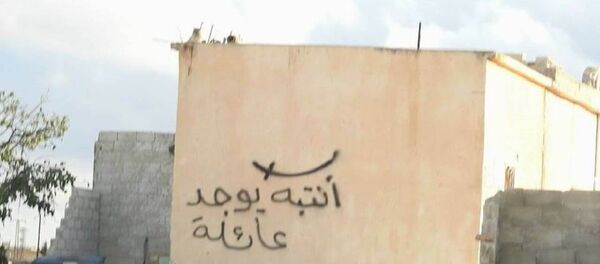 أنتبه يوجد
عائلة